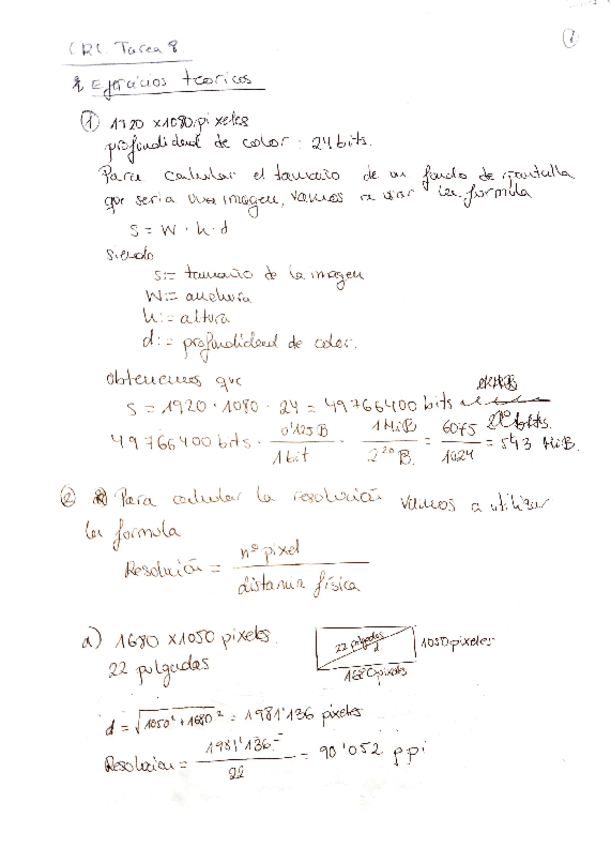 CRL Tarea 8.
1
Ejercicios teoricos
① 1920 x1080 pixeles
profundidad de color : 24bits.
Para calcular el tamaño de un fondo de pantalla
que seria una imagen, vamos a usar la formula
S = W · h · d
siendo
S:= tamaño de la imagen
W:= anchura
h:= altura
d:= profundidad de color.
obtenemos que
S = 1920 · 1080 · 24 = 49766400 bits
49766400 bits · 0'125B / 1 bit · 1 MiB / 2²⁰ B. = 6075 / 1024 = 5'93 MiB.
② Para calcular la resolución vamos a utilizar
la formula
Resolución = nº pixel / distancia física
a) 1680 x1050 pixeles.
22 pulgadas
22 pulgadas
d
1050 pixeles
1680 pixeles
d = √1050² + 1680² = 1981'136 pixeles
Resolucion = 1981'136 / 22 = 90'052 ppi